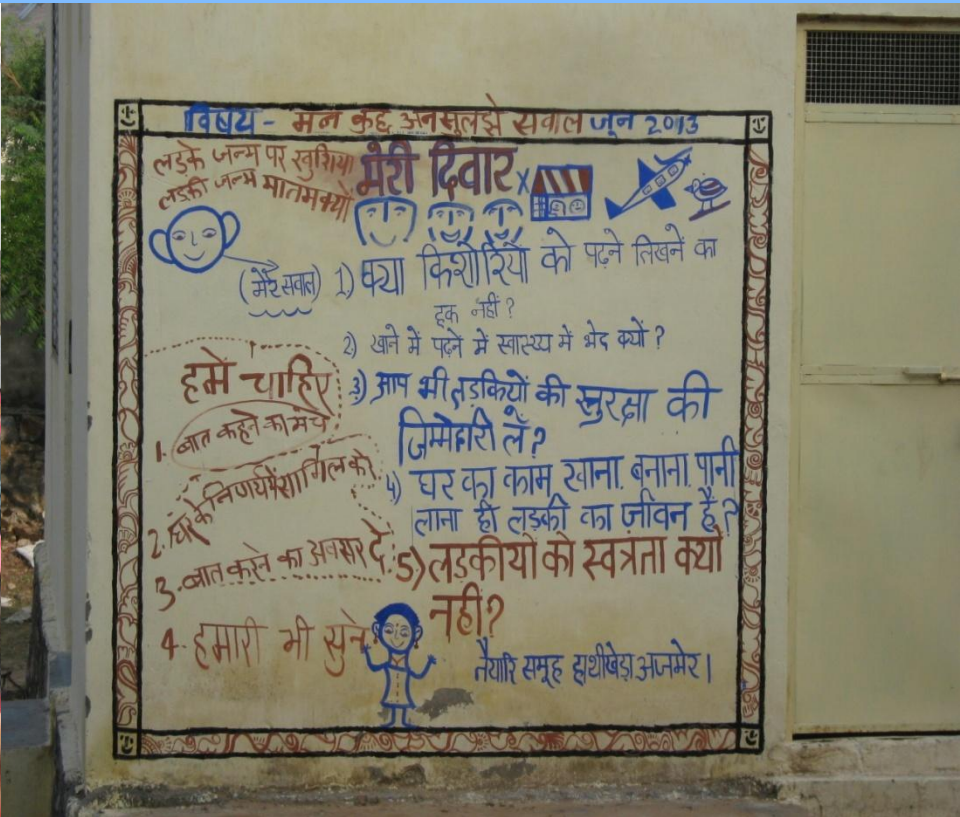 विषय - मन कुछ अनसुलझे सवाल जून 2013
लड़के जन्म पर खुशिया
लड़की जन्म मातम क्यों
मेरी दिवार
(मेरे सवाल)
1) क्या किशोरियों को पढ़ने लिखने का
हक नहीं?
2) खाने में पढ़ने में स्वास्थ्य में भेद क्यों?
3) आप भी लड़कियों की सुरक्षा की
जिम्मेदारी लें?
4) घर का काम खाना. बनाना. पानी
लाना ही लड़की का जीवन है?
5) लड़कीयो को स्वत्रंता क्यों
नही?
हमें चाहिए
1. बात कहने का मंच
2. घर के निर्णय में शामिल करे.
3. बात करने का अवसर दे.
4. हमारी भी सुने
तैयारि समूह हाथीखेड़ा अजमेर।